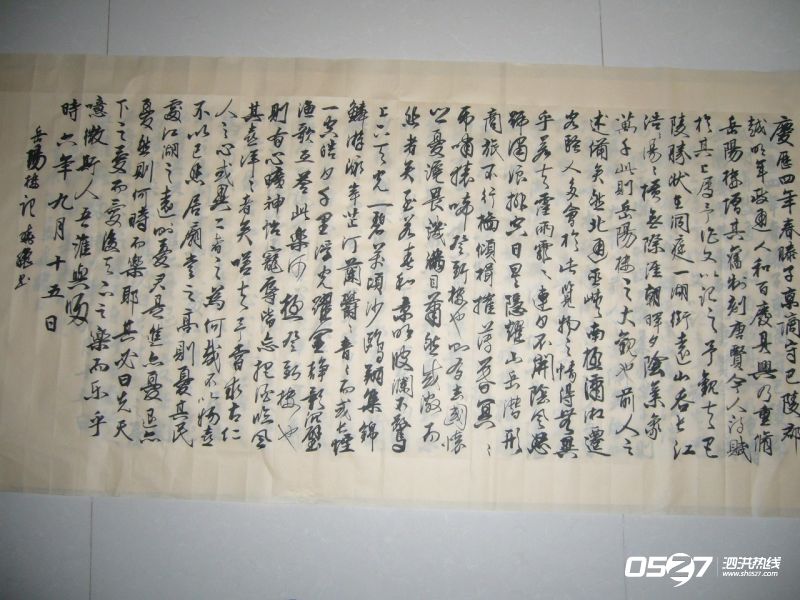 慶歷四年春滕子京謫守巴陵郡
越明年政通人和百廢具興乃重脩
岳陽樓增其舊制刻唐賢今人詩賦
於其上屬予作文以記之予觀夫巴
陵勝狀在洞庭一湖銜遠山吞長江
浩浩湯湯橫無際涯朝暉夕陰氣象
萬千此則岳陽樓之大觀也前人之
述備矣然北通巫峽南極瀟湘遷
客騷人多會於此覽物之情得無異
乎若夫霪雨霏霏連月不開陰風怒
號濁浪排空日星隱耀山岳潛形
商旅不行檣傾楫摧薄暮冥冥
虎嘯猿啼登斯樓也則有去國懷
鄉憂讒畏譏滿目蕭然感激而
悲者矣至若春和景明波瀾不驚
上下天光一碧萬頃沙鷗翔集錦
鱗游泳岸芷汀蘭郁郁青青而或長煙
一空皓月千里浮光躍金靜影沉璧
漁歌互答此樂何極登斯樓也
則有心曠神怡寵辱皆忘把酒臨風
其喜洋洋者矣嗟夫予嘗求古仁
人之心或異二者之為何哉不以物喜
不以己悲居廟堂之高則憂其民
處江湖之遠則憂其君是進亦憂退亦
憂然則何時而樂耶其必曰先天
下之憂而憂後天下之樂而乐乎
噫微斯人吾誰與歸
時六年九月十五日
岳陽樓記
0527 泗洪热线
www.sh0527.com